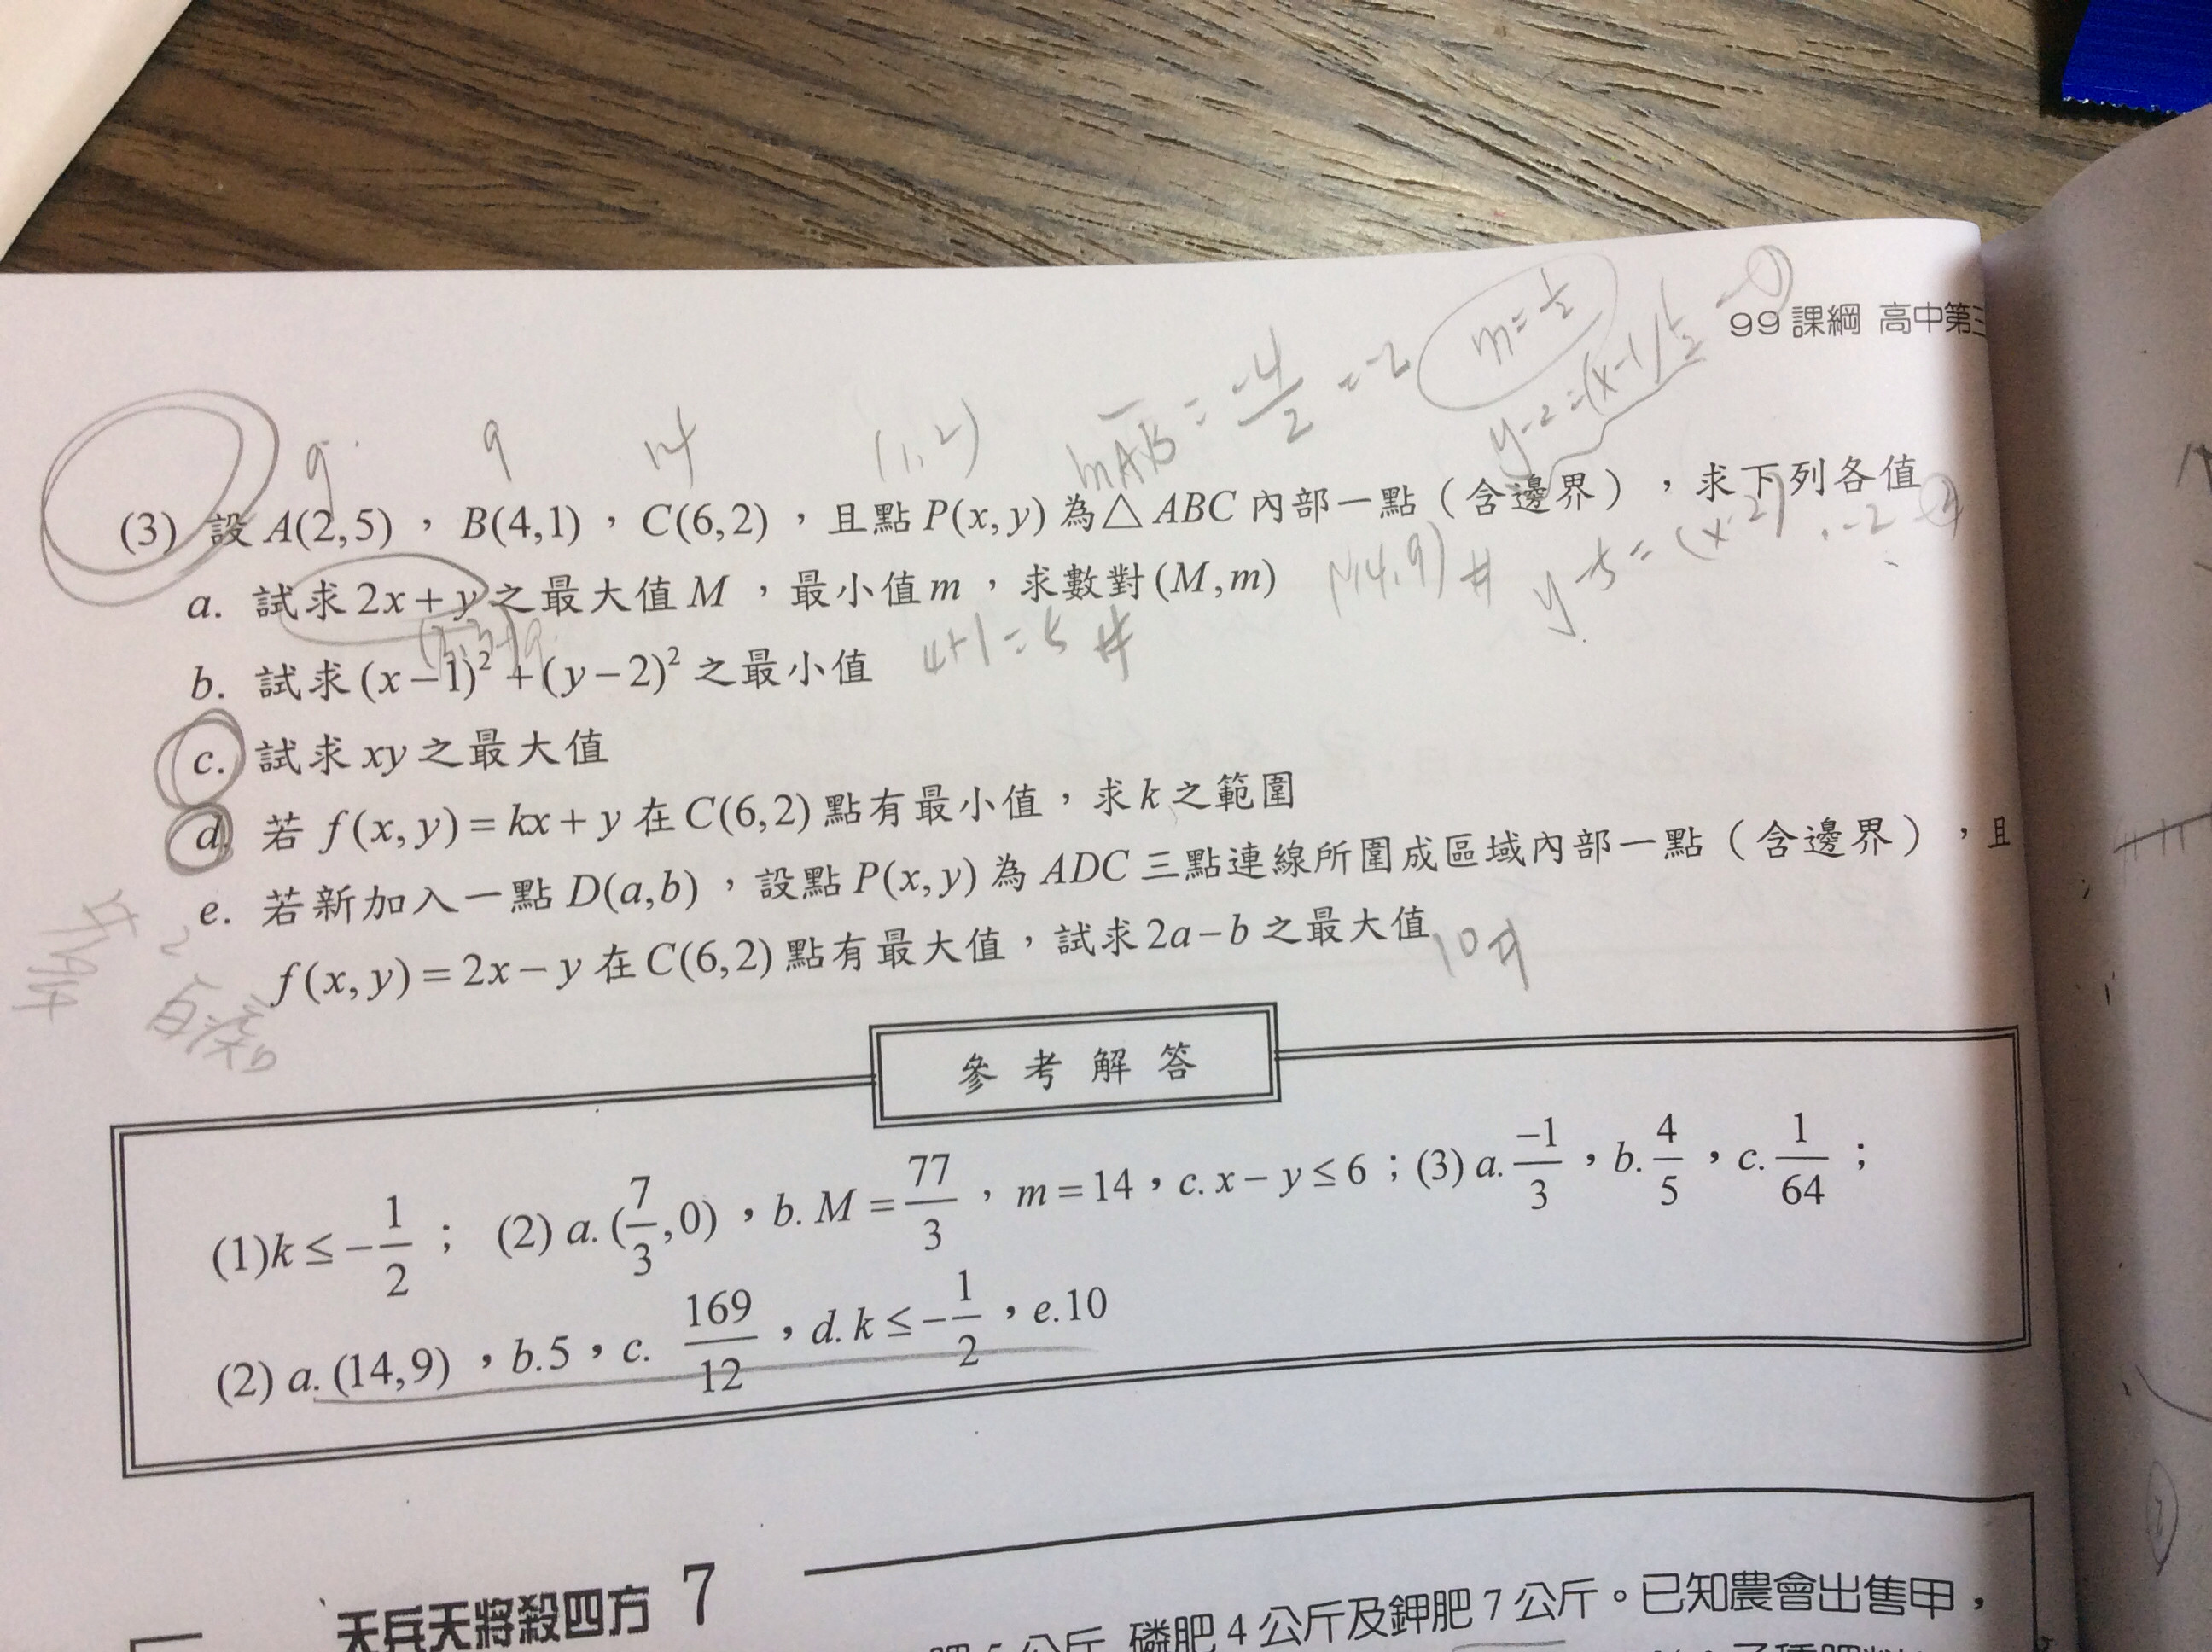 99 課綱 高中第三
m = 1/2
mAB = -4/2 = -2
y-2=(x-1)1/2
9 9 14 (1,2)
(3) 設 A(2,5) , B(4,1) , C(6,2) ,且點 P(x,y) 為△ ABC 內部一點(含邊界),求下列各值
y-5=(x-2)·-2
a. 試求 2x+y 之最大值 M ,最小值 m ,求數對 (M,m) (14,9) #
b. 試求 (x-1)²+(y-2)² 之最小值 4+1=5 #
c. 試求 xy 之最大值
d. 若 f(x,y)=kx+y 在 C(6,2) 點有最小值,求 k 之範圍
e. 若新加入一點 D(a,b) ,設點 P(x,y) 為 ADC 三點連線所圍成區域內部一點(含邊界),且
f(x,y)=2x-y 在 C(6,2) 點有最大值,試求 2a-b 之最大值 10 #
白癡
參考解答
(1)k≤-1/2 ; (2) a.(7/3,0) ,b. M=77/3 , m=14 ,c. x-y≤6 ;(3) a. -1/3 ,b. 4/5 ,c. 1/64 ;
(2) a.(14,9) ,b.5 ,c. 169/12 ,d. k≤-1/2 ,e.10
天兵天將殺四方 7
肥 5 公斤、磷肥 4 公斤及鉀肥 7 公斤。已知農會出售甲,